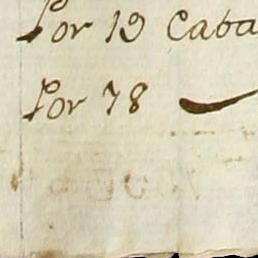 Por 19 Caba
Por 78